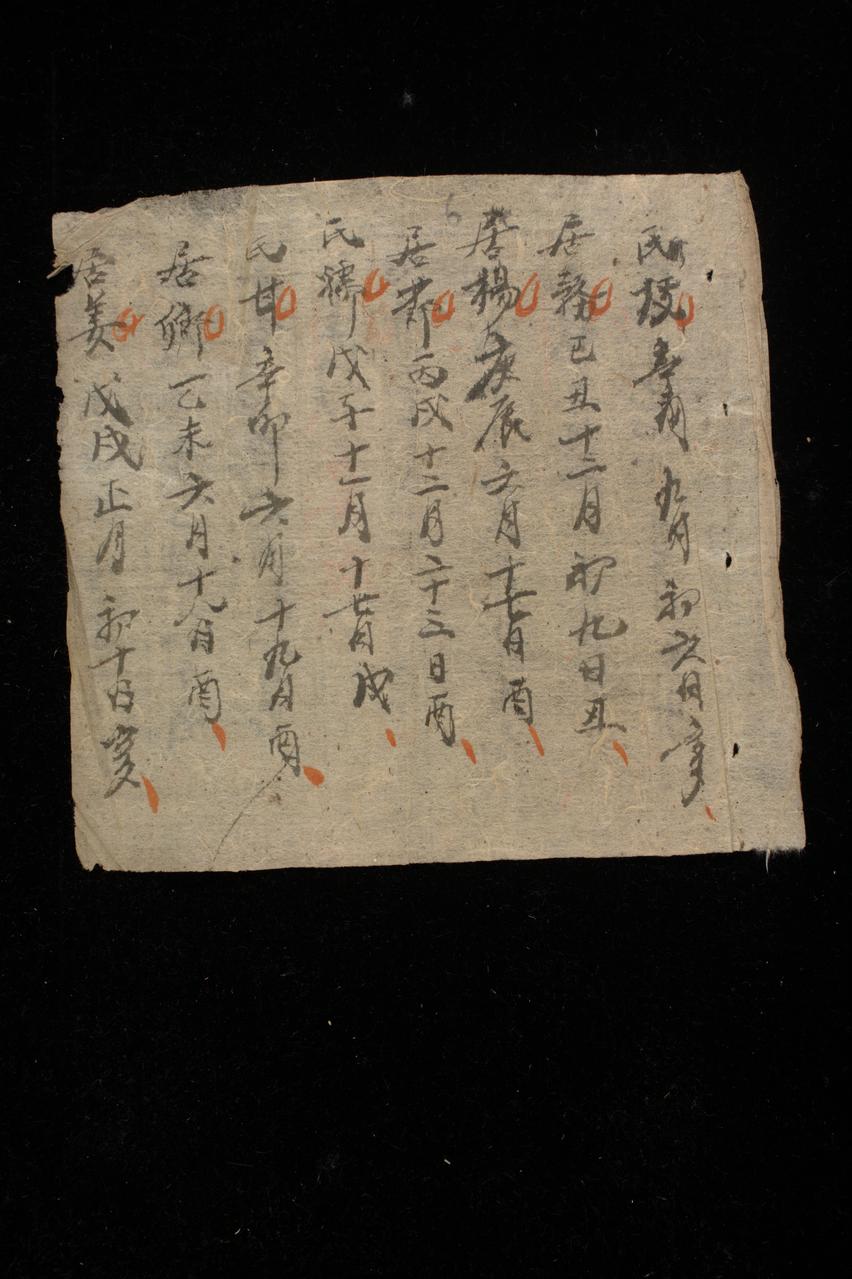 民 九月初六日
居務己丑十二月初九日丑
居楊庚辰六月十七日酉
居 丙戌十二月二十三日酉
民 戊子十一月十七日戌
民甘辛卯六月十九日酉
居鄉乙未六月十八日酉
居姜戊戌正月初十日亥